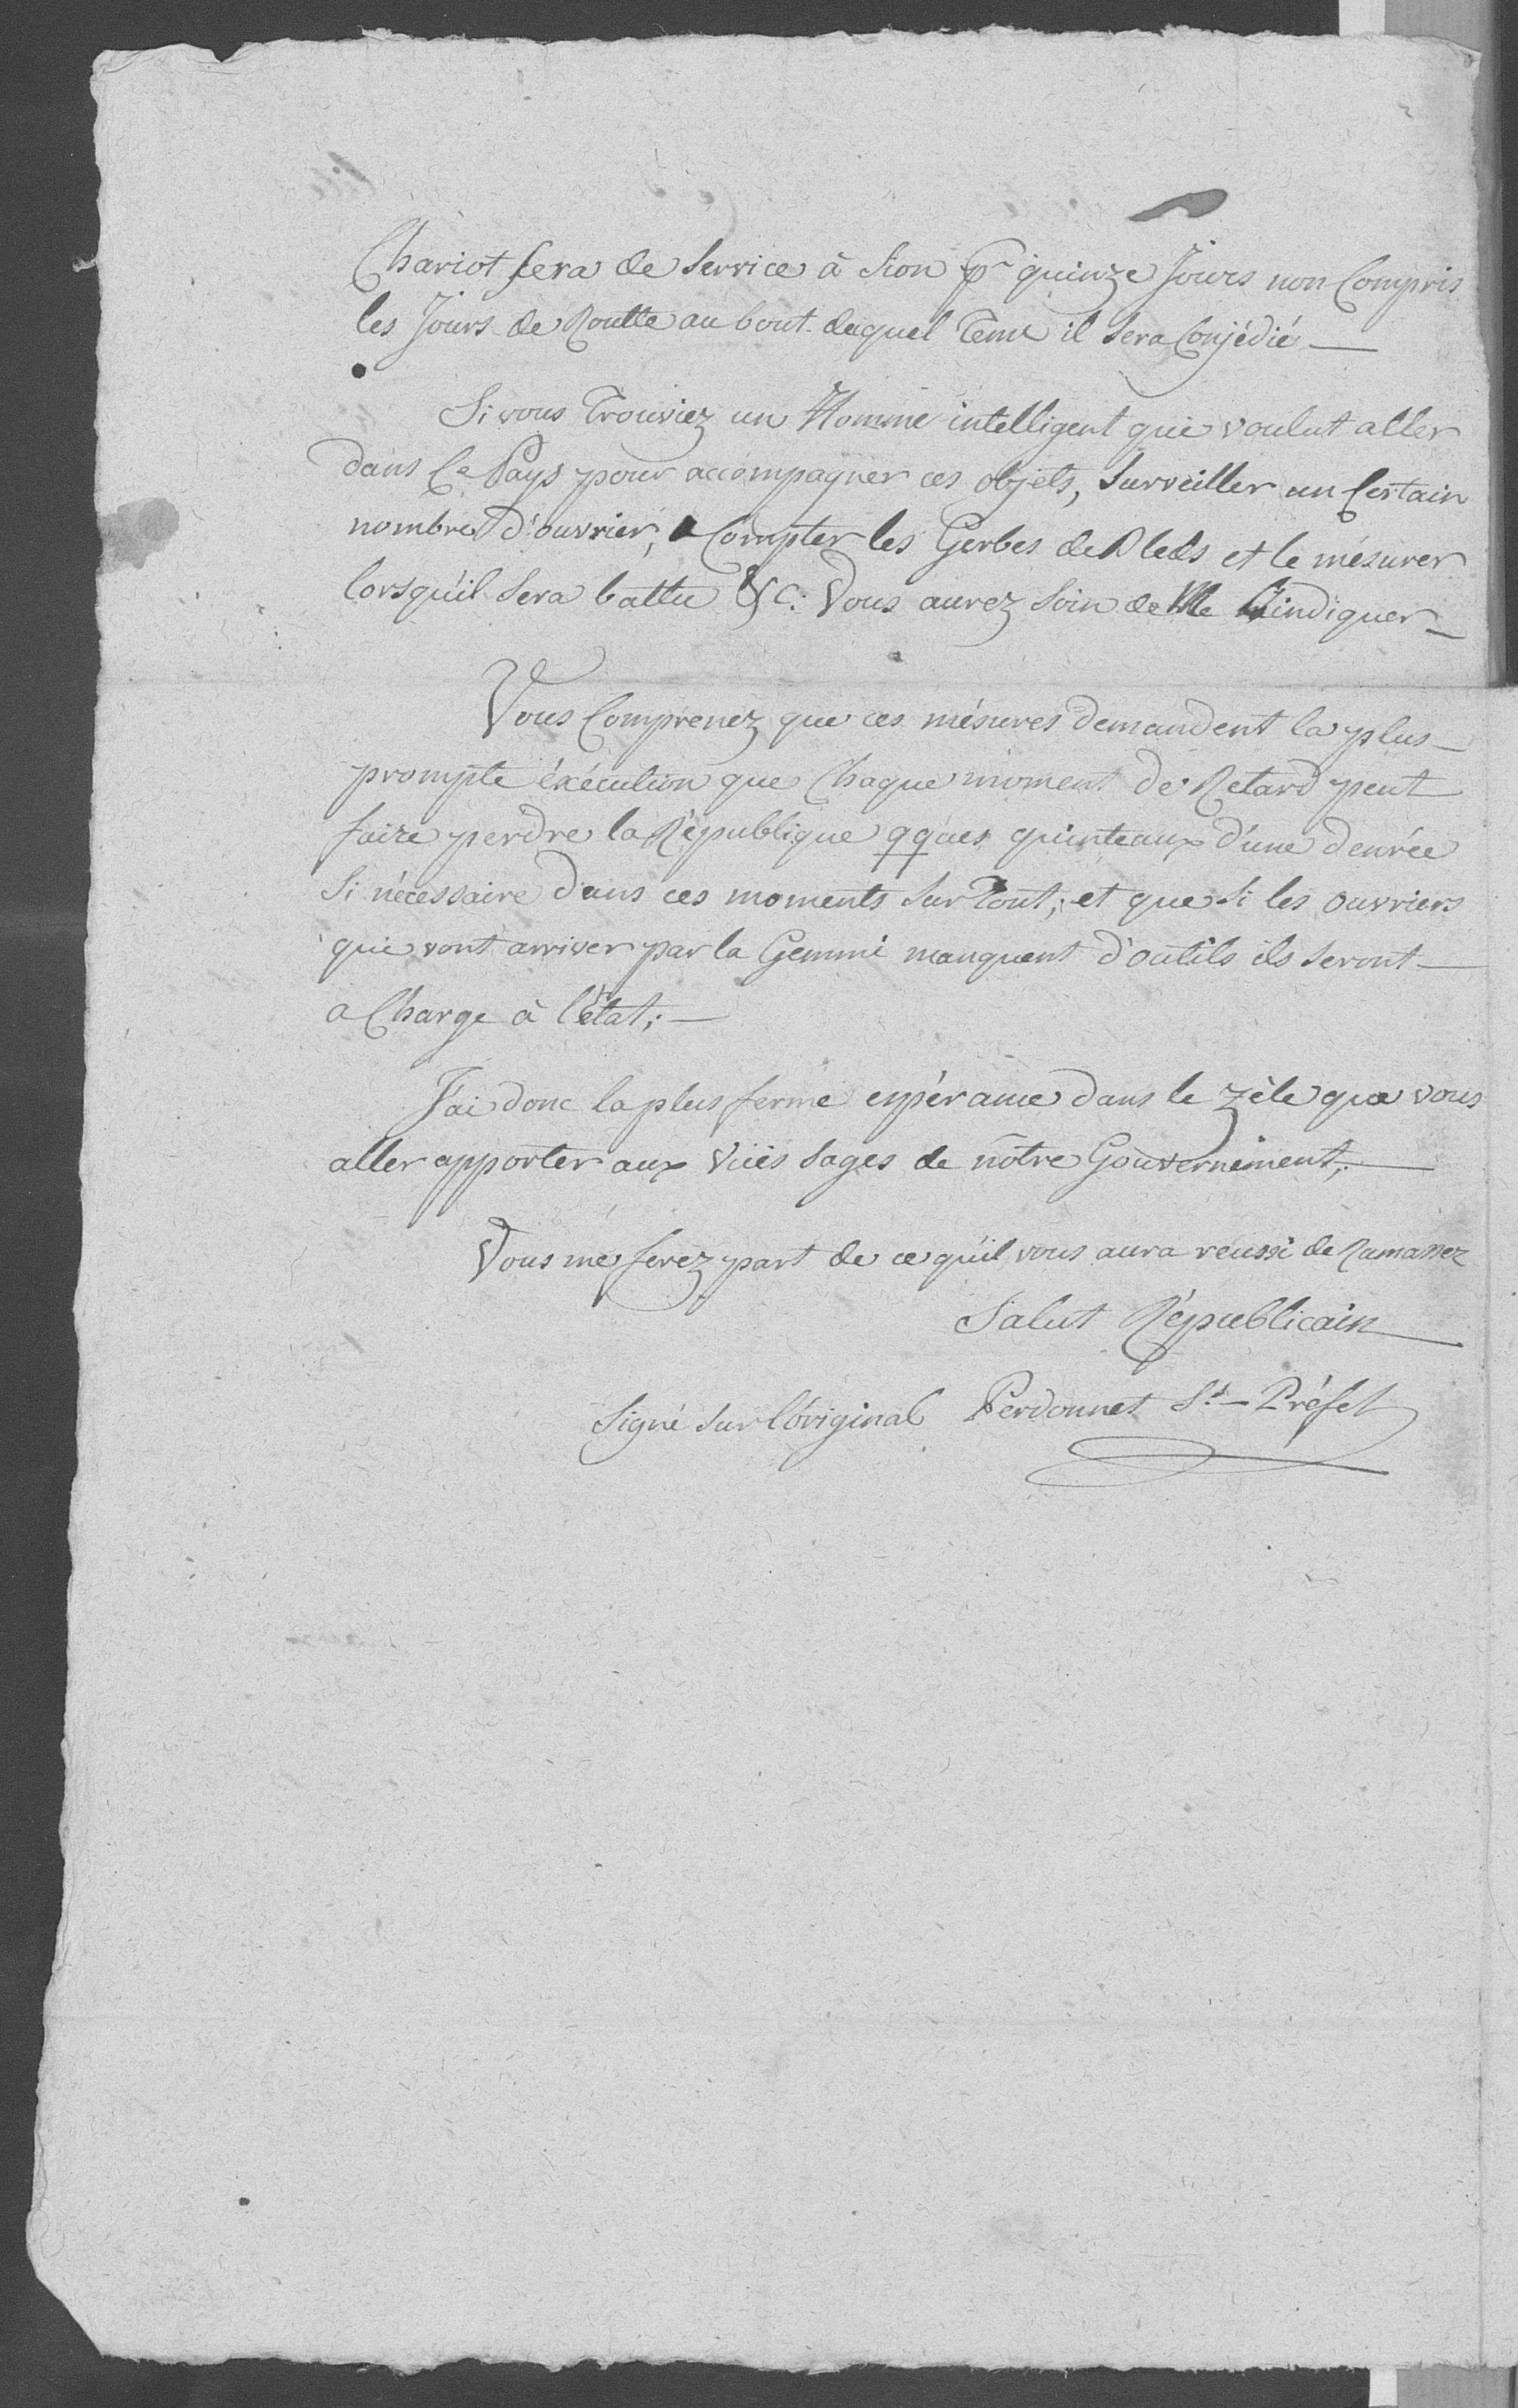 Chariot sera de service à Sion pr quinze Jours non Compris
les Jours de Routte au bout duquel Tems il sera Conjédié —
Si vous Trouviez un Homme intelligent qui voulut aller
dans Ce Pays pour accompagner ces objets, Surveiller un Certain
nombre d'ouvrier, Compter les Gerbes de Bleds et le mésurer
lorsqu'il sera battu &c: Vous aurez soin de Me l'indiquer —
Vous Comprenez que ces mésures demandent la plus —
prompte éxécution que Chaque moment de Retard peut
faire perdre la République qques quinteaux d'une denrée
si nécessaire dans ces moments sur Tout; et que si les ouvriers
qui vont arriver par la Gemmi manquent d'outils ils seront —
a Charge à l'état; —
J'ai donc la plus ferme espérance dans le zèle que vous
aller apporter aux vües sages de nôtre Gouvernement; —
Vous me ferez part de ce qu'il vous aura réussi de Ramasser
Salut Républicain
Signé sur l'original Perdonnet Ss. — Préfet